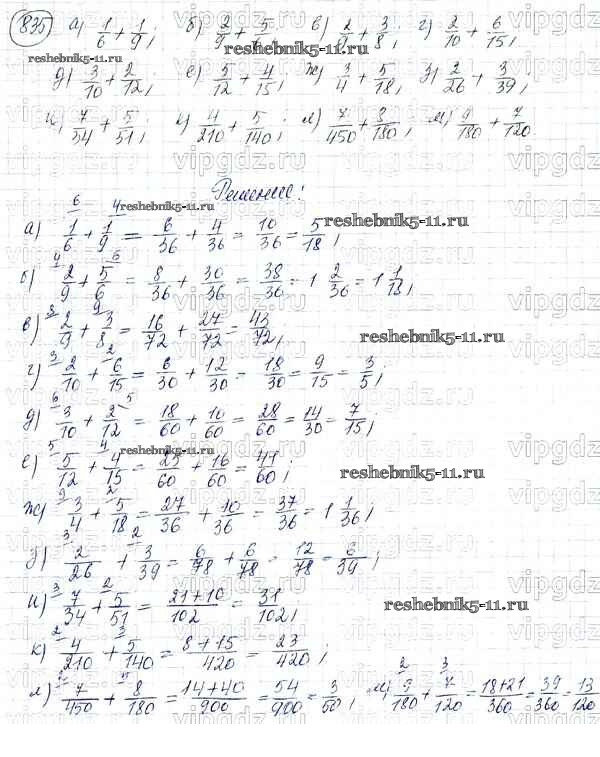 835 а) 1/6 + 1/9; б) 2/9 + 5/6; в) 2/9 + 3/8; г) 2/10 + 6/15;
д) 3/10 + 2/12; е) 5/12 + 4/15; ж) 3/4 + 5/18; з) 2/26 + 3/39;
и) 7/34 + 5/51; к) 4/210 + 5/140; л) 7/450 + 8/180; м) 9/180 + 7/120.
Решение:
а) 1/6 + 1/9 = 6/36 + 4/36 = 10/36 = 5/18;
б) 2/9 + 5/6 = 8/36 + 30/36 = 38/36 = 1 2/36 = 1 1/18;
в) 2/9 + 3/8 = 16/72 + 27/72 = 43/72;
г) 2/10 + 6/15 = 6/30 + 12/30 = 18/30 = 9/15 = 3/5;
д) 3/10 + 2/12 = 18/60 + 10/60 = 28/60 = 14/30 = 7/15;
е) 5/12 + 4/15 = 25/60 + 16/60 = 41/60;
ж) 3/4 + 5/18 = 27/36 + 10/36 = 37/36 = 1 1/36;
з) 2/26 + 3/39 = 6/78 + 6/78 = 12/78 = 6/39;
и) 7/34 + 5/51 = 21+10/102 = 31/102;
к) 4/210 + 5/140 = 8+15/420 = 23/420;
л) 7/450 + 8/180 = 14+40/900 = 54/900 = 3/50; м) 9/180 + 7/120 = 18+21/360 = 39/360 = 13/120
reshebnik5-11.ru
vipgdz.ru